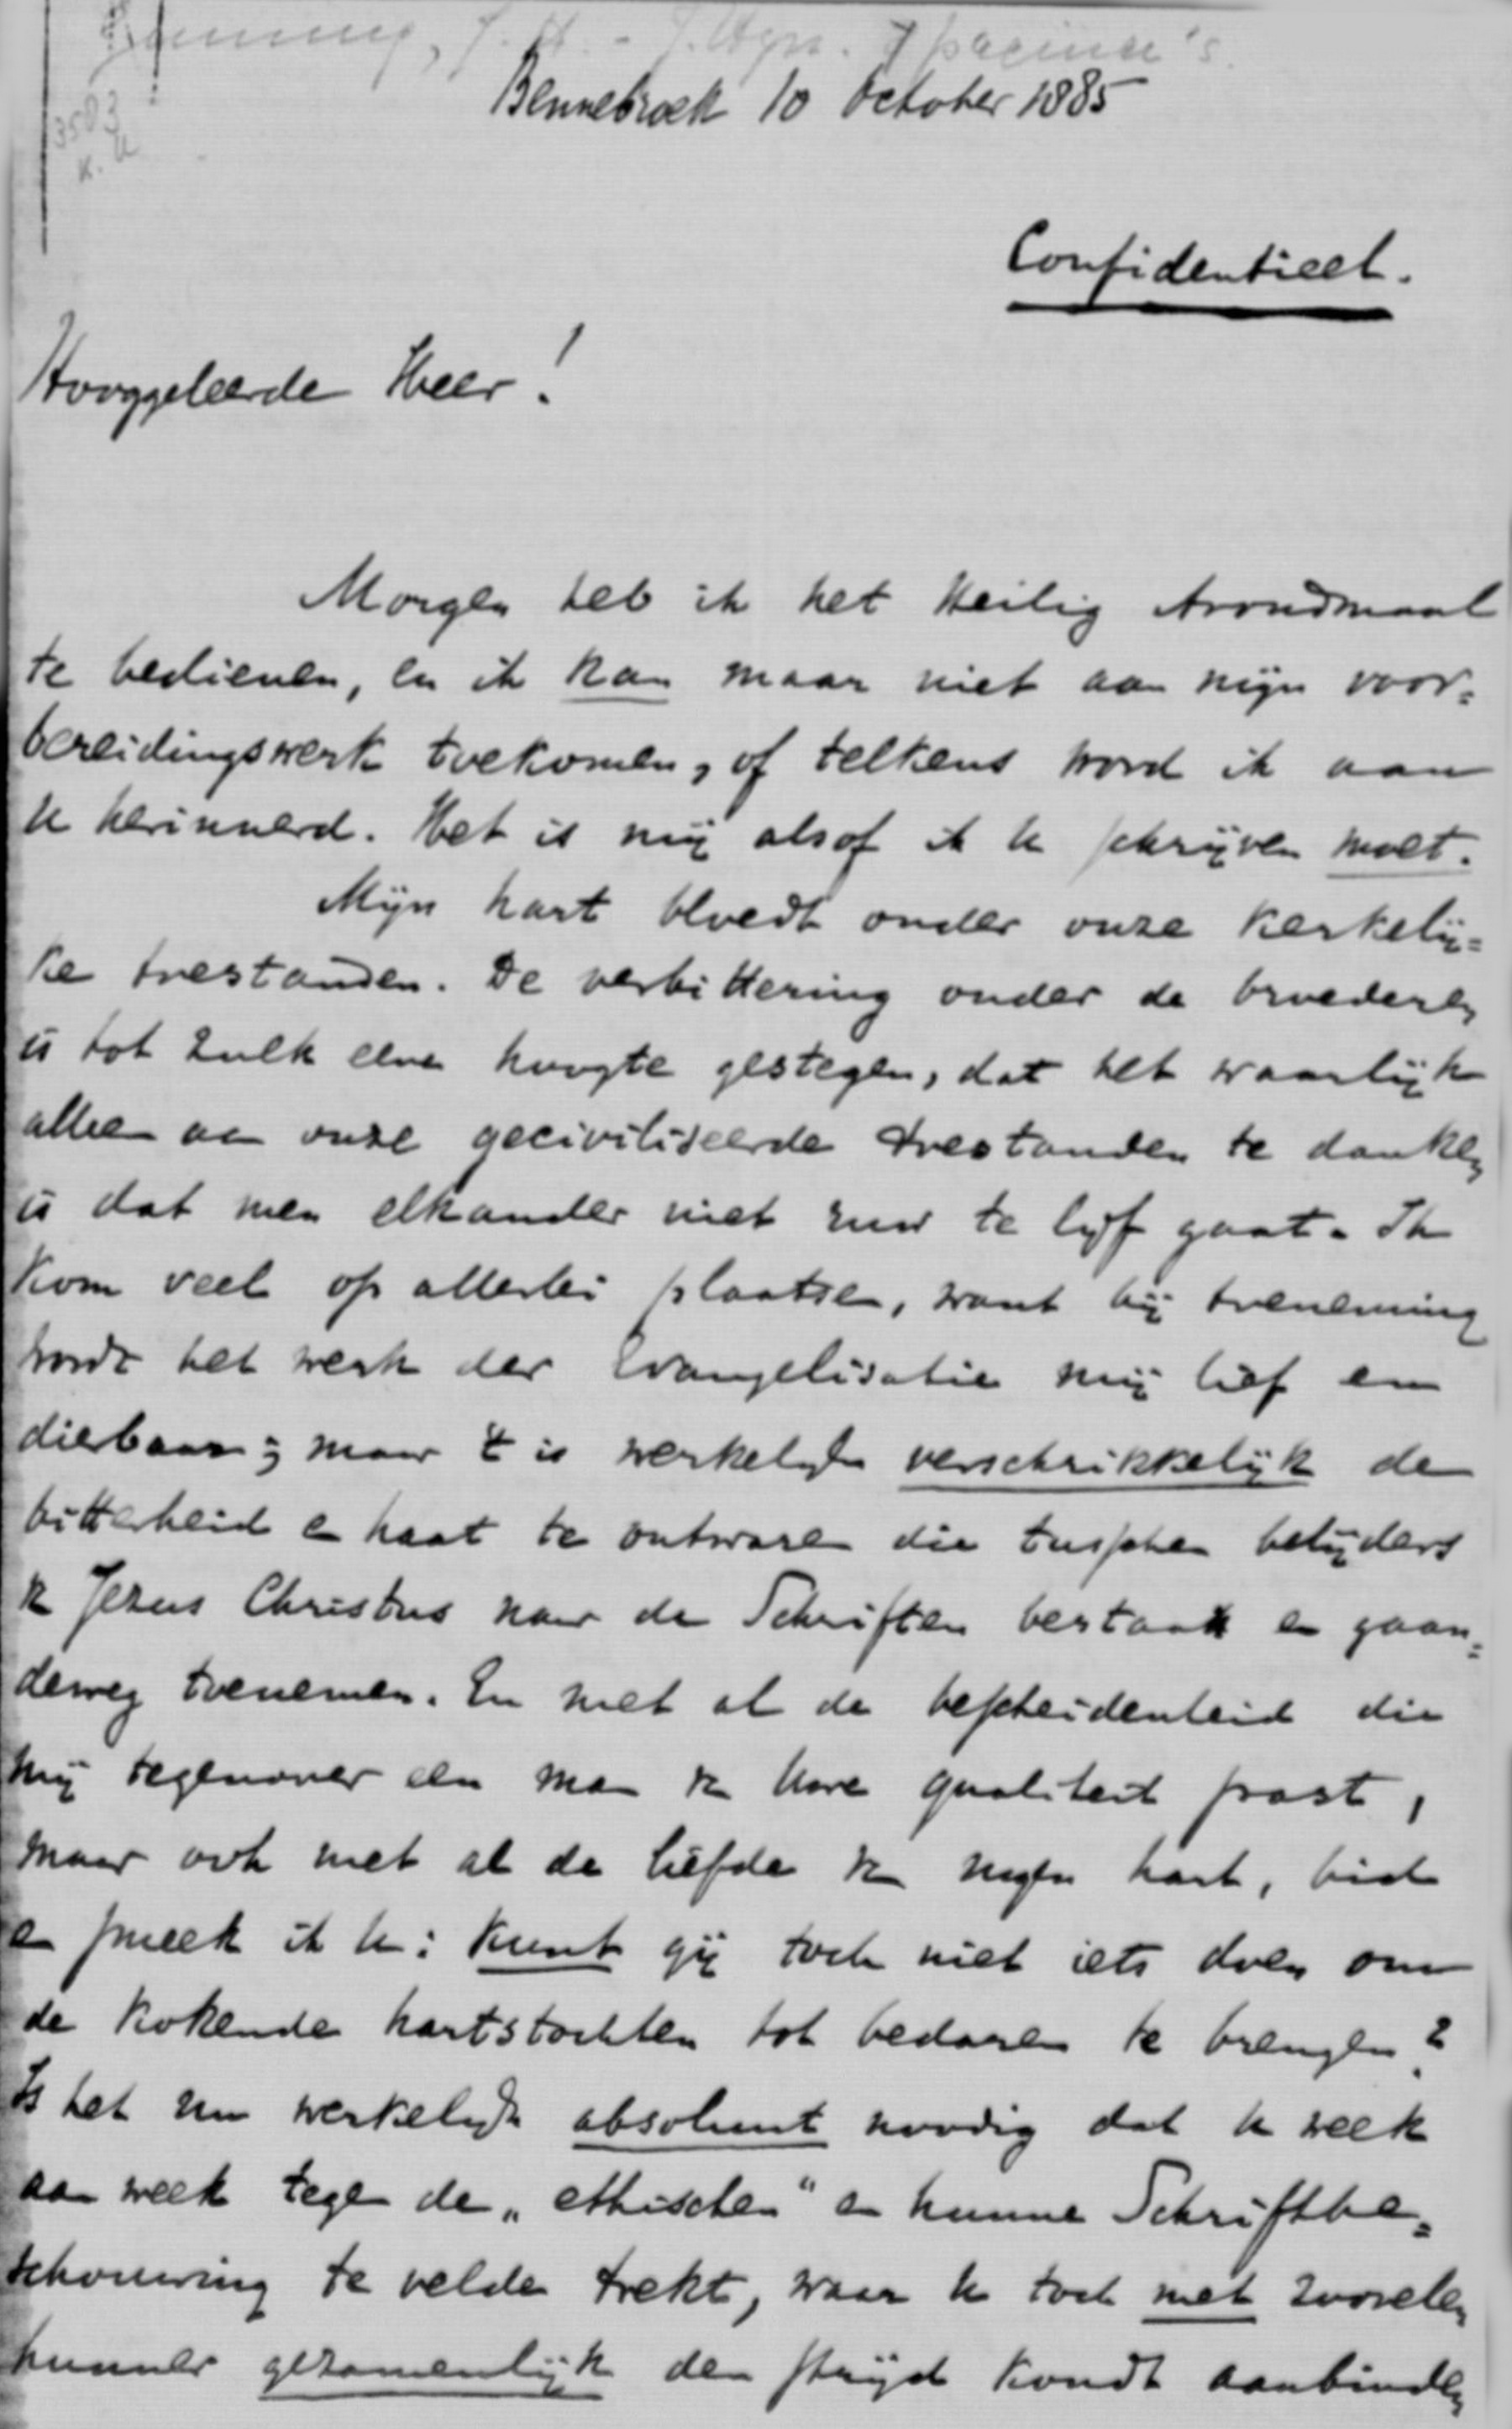 Gunning, J.H. - J.Hzn. 7 specima's.
3503
K. U
Bennebroek 10 October 1885
Confidentieel.
Hooggeleerde Heer!
Morgen heb ik het Heilig Avondmaal
te bedienen, en ik kan maar niet aan mijn voor=
bereidingswerk toekomen, of telkens word ik aan
U herinnerd. Het is mij alsof ik U schrijven moet.
Mijn hart bloedt onder onze kerkelij=
ke toestanden. De verbittering onder de broederen
is tot zulk eene hoogte gestegen, dat het waarlijk
alleen aan onze geciviliseerde toestanden te danken
is dat men elkander niet ruw te lijf gaat. Ik
kom veel op allerlei plaatsen, want bij toeneming
wordt het werk der Evangelisatie mij lief en
dierbaar; maar 't is werkelijk verschrikkelijk de
bitterheid en haat te ontwaren die tusschen belijders
v. Jezus Christus naar de Schriften bestaat en gaan=
deweg toenemen. En met al de bescheidenheid die
mij tegenover een man v. Uwe qualiteit past,
maar ook met al de liefde v. mijn hart, bid
en smeek ik U: kunt gij toch niet iets doen om
de kokende hartstochten tot bedaren te brengen?
Is het nu werkelijk absoluut noodig dat U week
aan week tegen de „ethischen" en hunne Schriftbe=
schouwing te velde trekt, waar U toch met zoovelen
hunner gezamenlijk den strijd kondt aanbinden